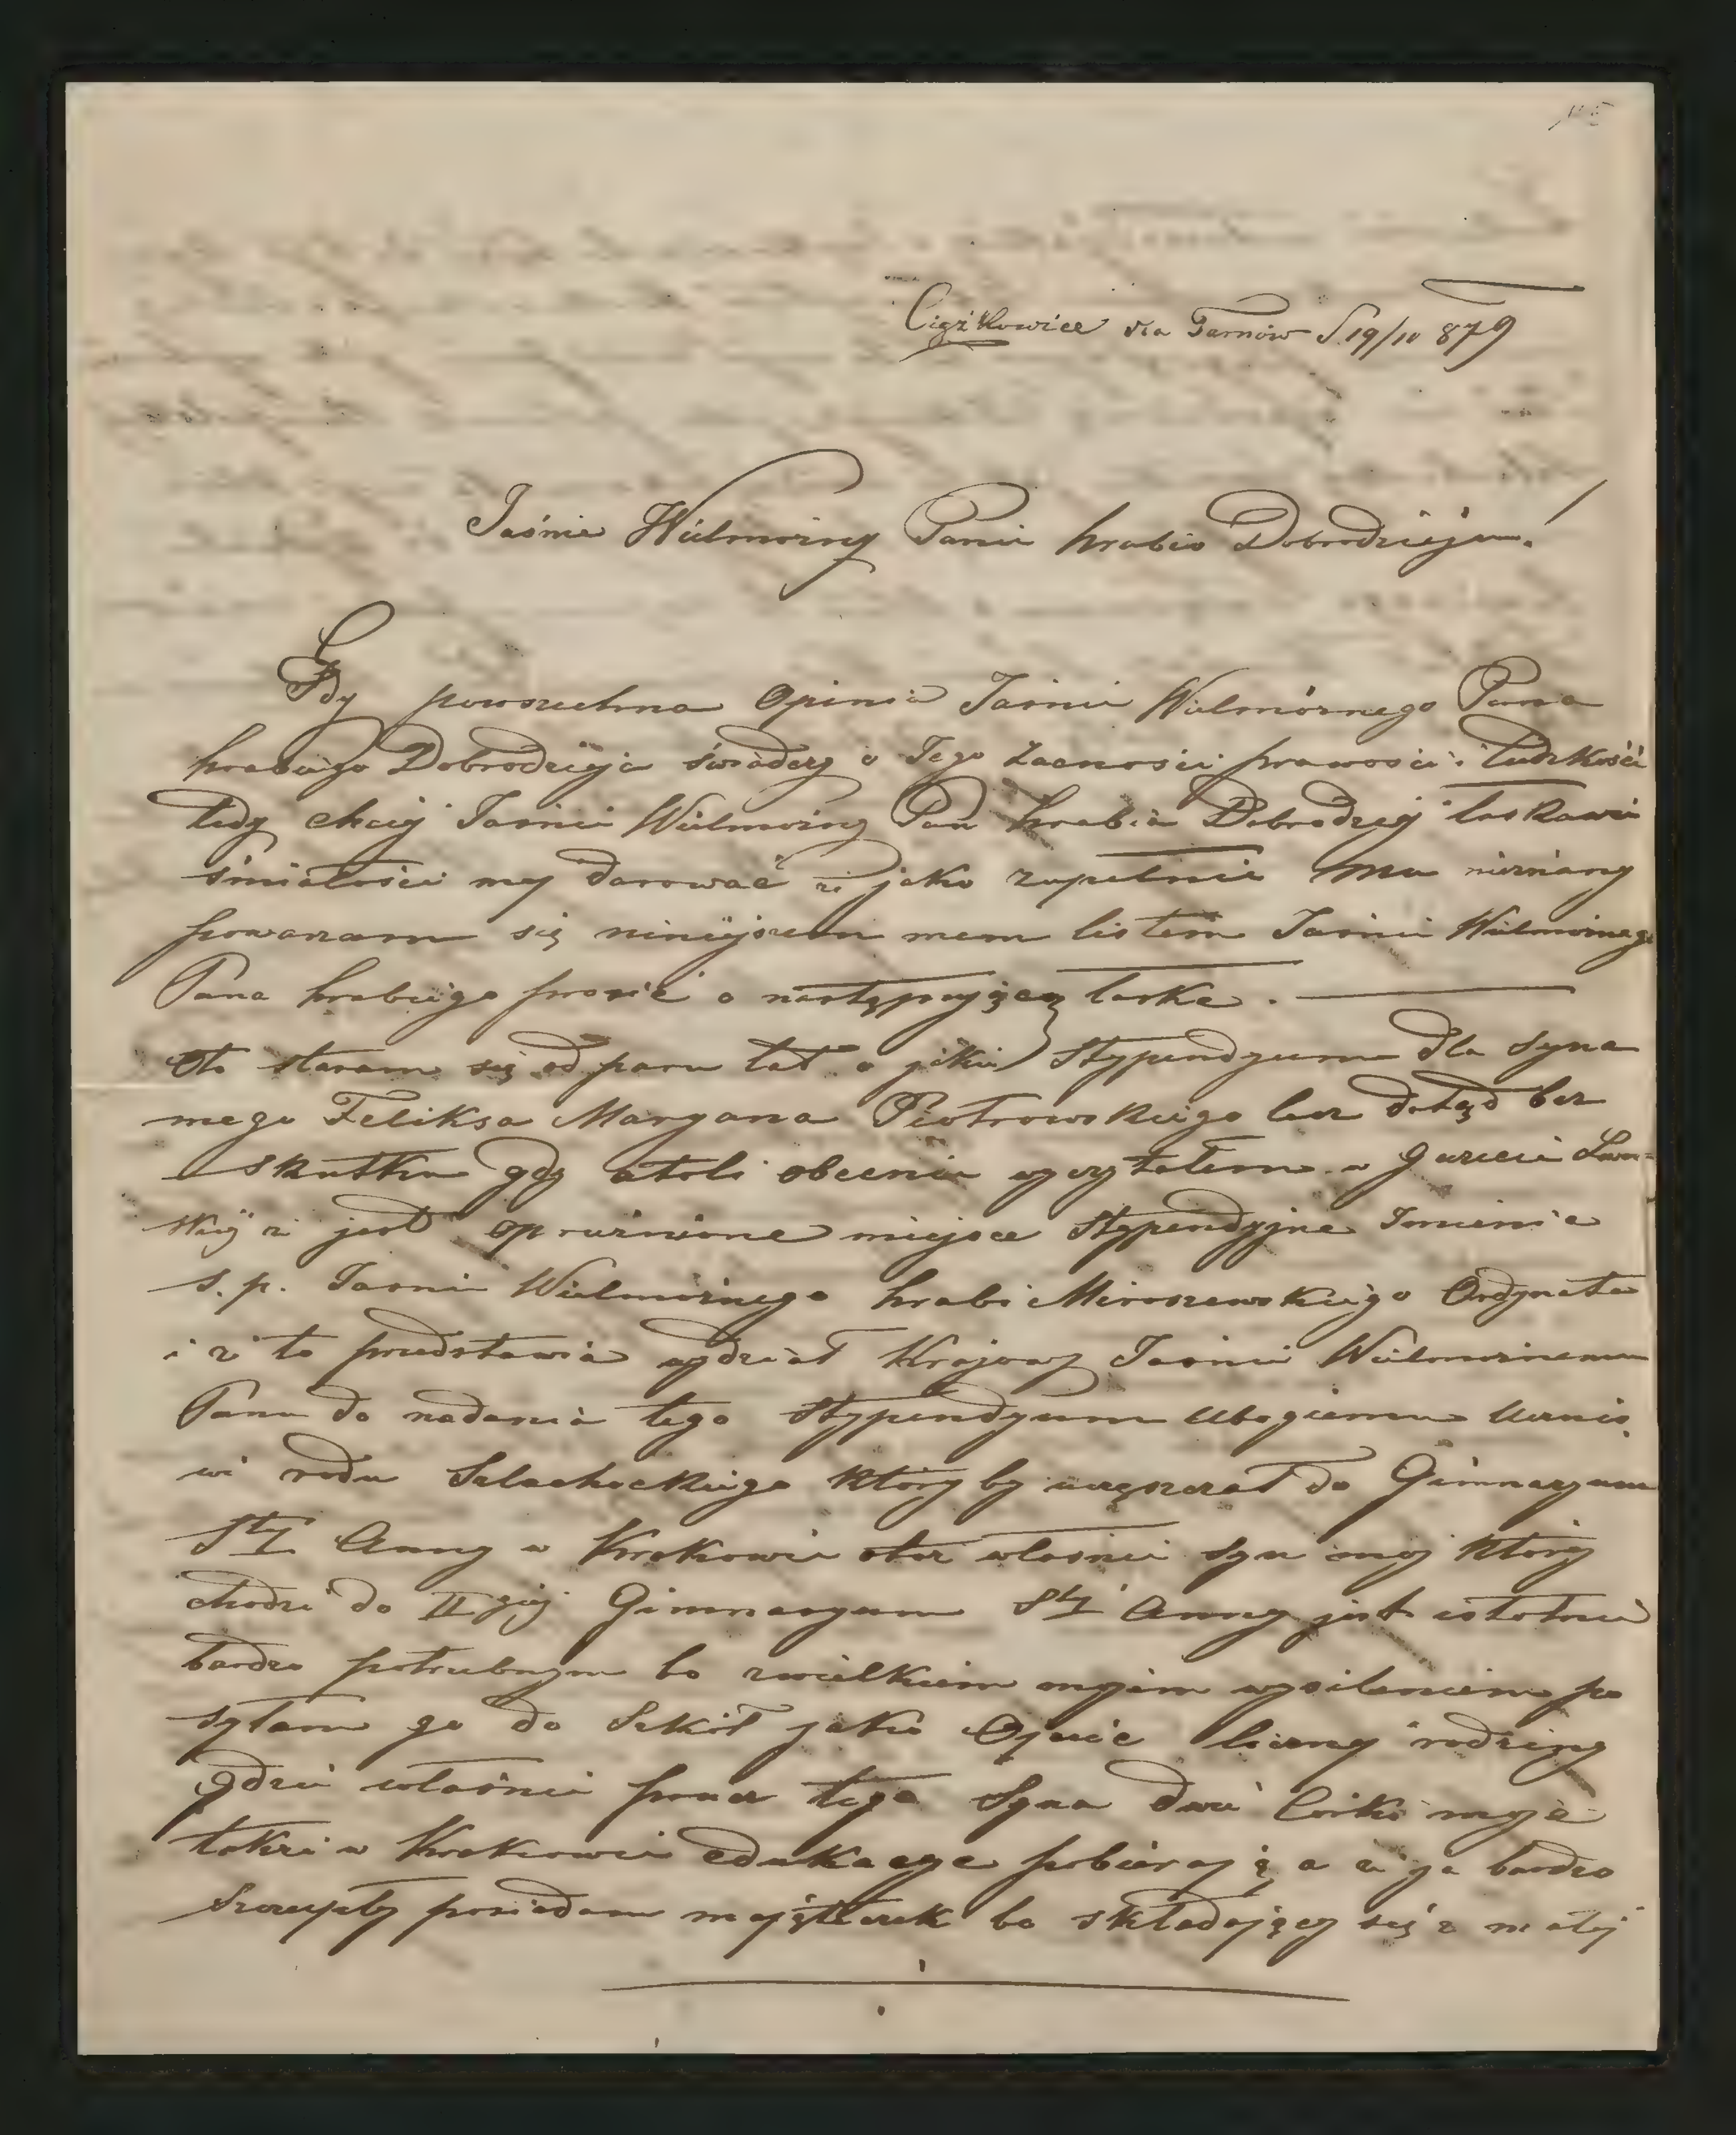 Ciężkowice via Tarnów d. 19/10 879
Jaśnie Wielmożny Panie hrabio Dobrodzieju!
Gdy powszechna Opinia Jaśnie Wielmożnego Pana
hrabiego Dobrodzieja świadczy o Jego zacności prawości i ludzkości
tedy chciej Jaśnie Wielmożny Pan hrabia Dobrodziej łaskawie
śmiałości mej darować że jako zupełnie mu nieznany
poważam się niniejszem mem listem Jaśnie Wielmożnego
Pana hrabiego prosić o następującą łaskę.
Oto staram się od paru lat o jakie Stypendyum dla syna
mego Feliksa Maryana Piotrowskiego lecz dotąd bez
skutku gdy atoli obecnie wyczytałem w Gazecie Lwow-
skiej że jest opróżnione miejsce Stypendyjne Imienia
ś. p. Jaśnie Wielmożnego hrabi Miroszewskiego Ordynata
i że to przedstawia wydział Krajowy Jaśnie Wielmożnemu
Panu do nadania tego Stypendyum Ubogiemu Ucznio
wi rodu Szlacheckiego któryby uczęszczał do Gimnazyum
Stej Anny w Krakowie otóż właśnie syn mój który
chodzi do II giej Gimnazyum Stej Anny jest istotnie
bardzo potrzebnym bo zwielkiem mojem wysileniem po
syłam go do Szkół jako Ojciec licznej rodziny
gdzie właśnie prócz tego Syna dwie Córki moje
także w Krakowie edukacye pobierają a że ja bardzo
szczupły posiadam mająteczek bo składający się z małej